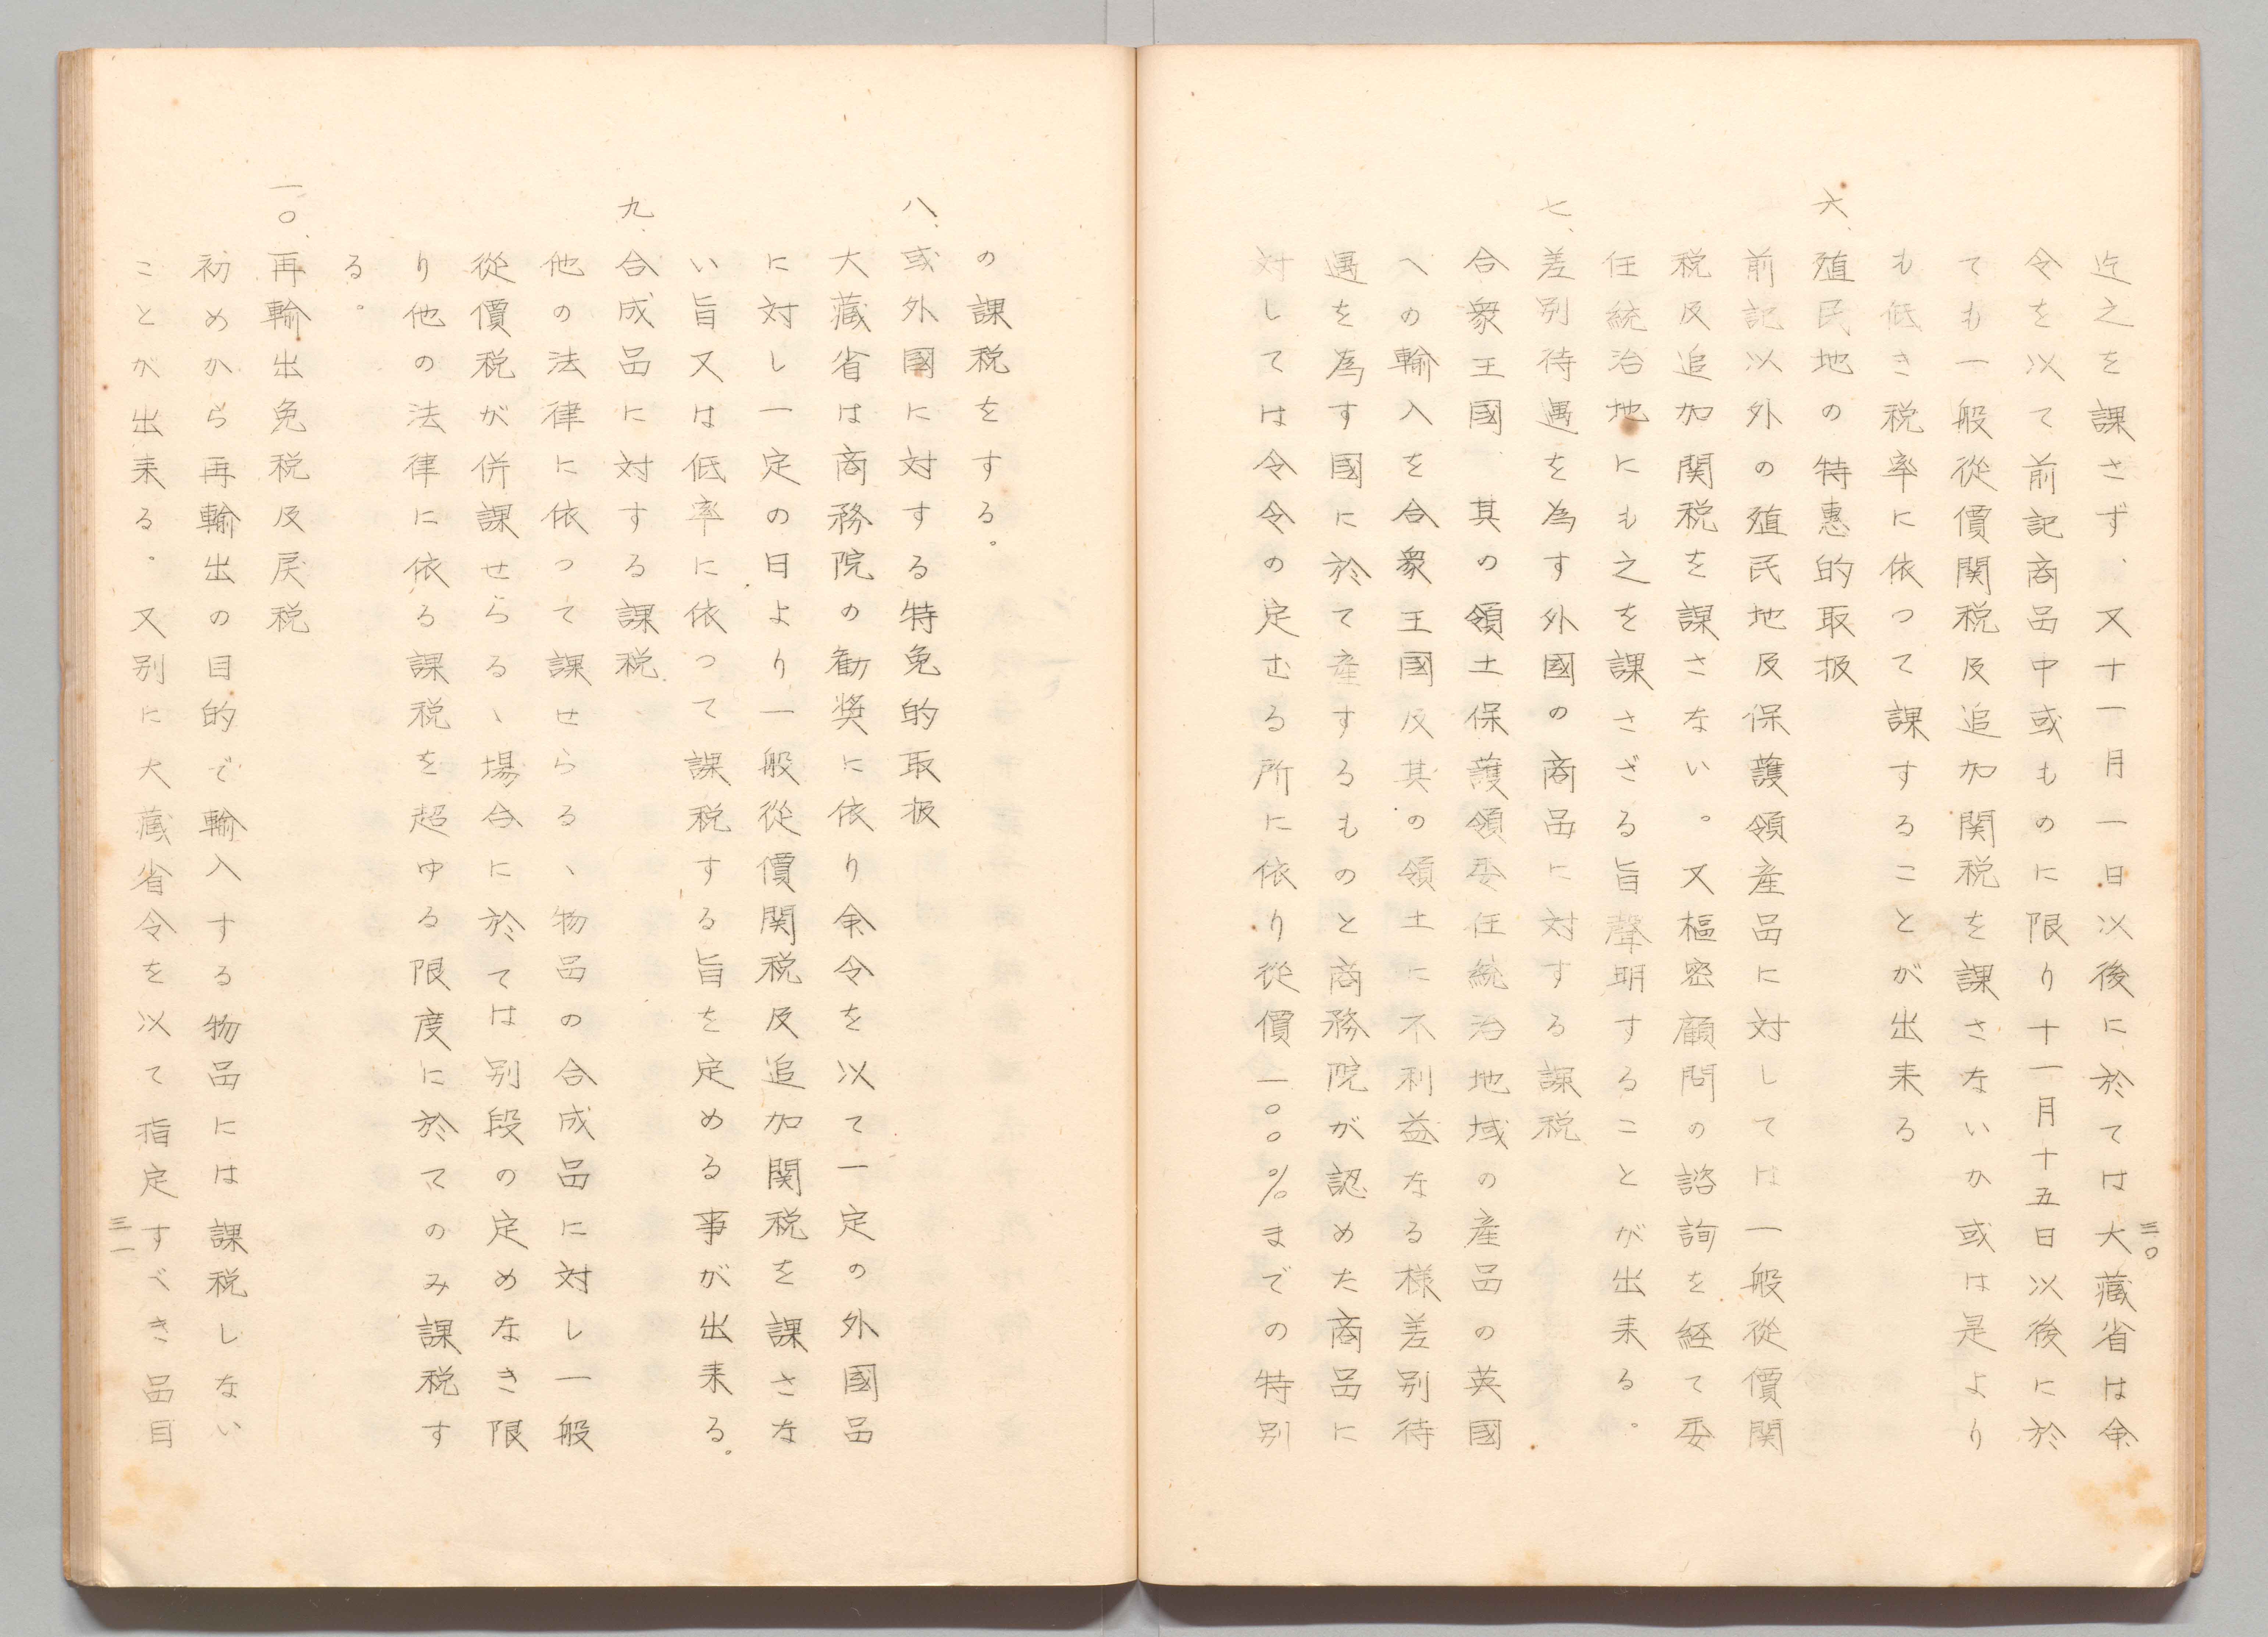 迄之を課さず、又十一月一日以後に於ては大藏省は命
令を以て前記商品中或ものに限り十一月十五日以後に於
ても一般從價関税及追加関税を課さないか或は是より
も低き税率に依つて課することが出来る
六、殖民地の特惠的取扱
前記以外の殖民地及保護領産品に対しては一般從價関
税及追加関税を課さない。又樞密顧問の諮詢を経て委
任統治地にも之を課さざる旨聲明することが出来る。
七、差別待遇を為す外國の商品に対する課税
合衆王國、其の領土保護領委任統治地域の産品の英國
への輸入を合衆王國及其の領土に不利益なる様差別待
遇を為す國に於て産するものと商務院が認めた商品に
対しては命令の定むる所に依り從價一〇〇%までの特別
三〇
の課税をする。
八、或外國に対する特免的取扱
大藏省は商務院の勧奨に依り命令を以て一定の外國品
に対し一定の日より一般從價関税及追加関税を課さな
い旨又は低率に依つて課税する旨を定める事が出来る。
九、合成品に対する課税
他の法律に依つて課せらるゝ物品の合成品に対し一般
從價税が併課せらるゝ場合に於ては別段の定めなき限
り他の法律に依る課税を超ゆる限度に於てのみ課税す
る。
一〇、再輸出免税及戻税
初めから再輸出の目的で輸入する物品には課税しない
ことが出来る。又別に大藏省令を以て指定すべき品目
三一